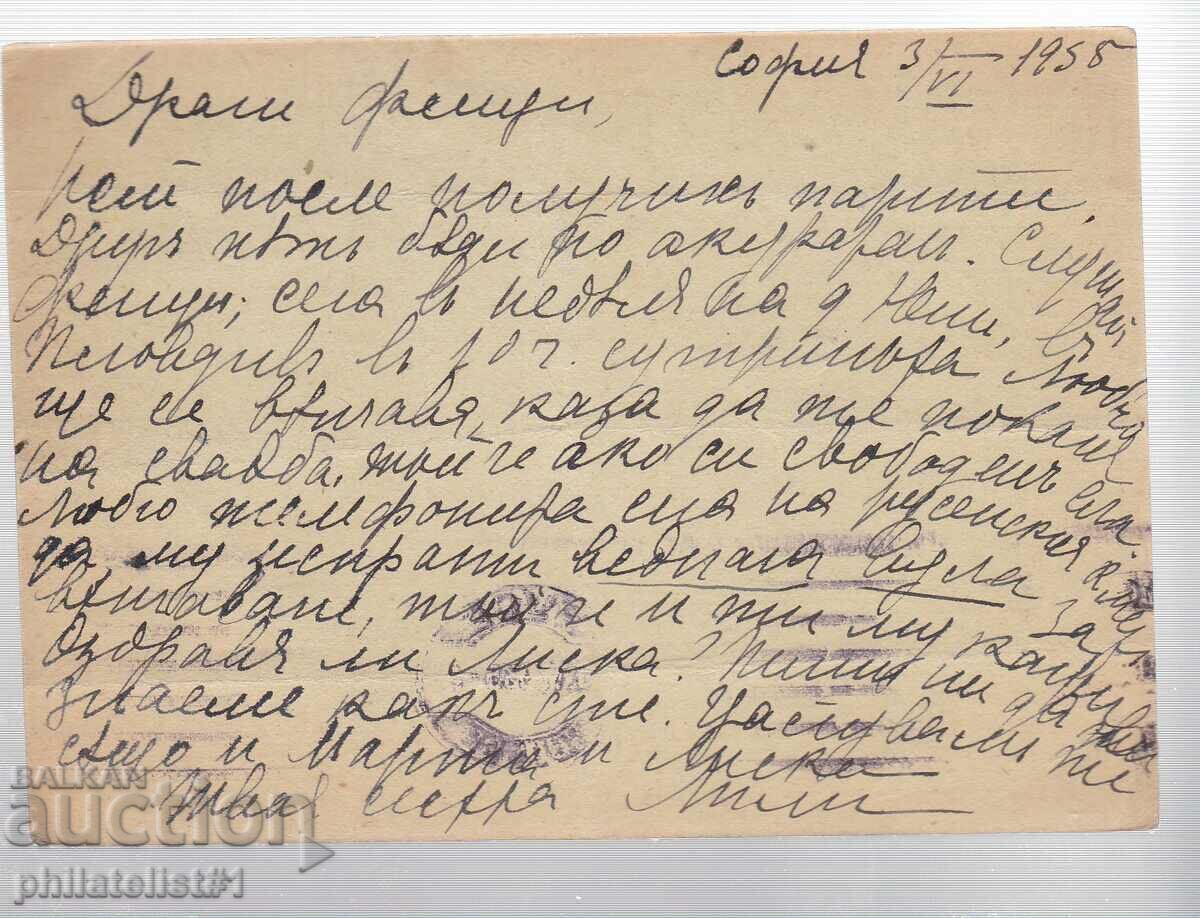 София 3/VI 1958
Драги Фенци,
после получихъ парите.
Другъ пѫть бѫди по акуратенъ. Слушай
Фенци, сега въ недѣля на 9 Юни, въ
Пловдивъ въ 10 ч. сутриньта Любчо
ще се вѣнчава, каза да те покани
на сватба, тъй че ако си свободенъ ела.
Любо телефонира ена на русенския
да му изпрати веднага була за
вѣнчаване, тъй че и ти му кажи.
Оздравя ли Лиска? Пиши ни да
знаеме какъ сте. Цалувамъ ти
също и Марта и Лиска
Твоя сестра Лили
BALKAN
auction
philatelist#1